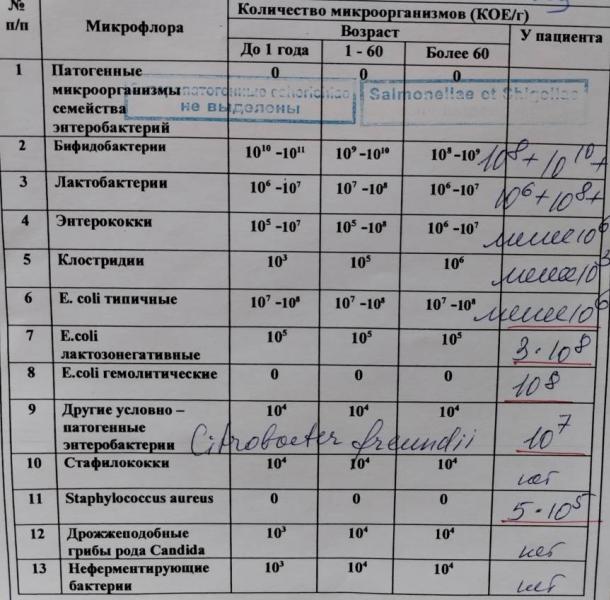 № п/п Микрофлора Количество микроорганизмов (КОЕ/г)
Возраст У пациента
До 1 года 1 - 60 Более 60
1 Патогенные микроорганизмы семейства энтеробактерий 0 0 0
не выделены
Salmonellae et Shigellae
2 Бифидобактерии 10¹⁰ -10¹¹ 10⁹ -10¹⁰ 10⁸ -10⁹ 10⁸+ 10¹⁰+
3 Лактобактерии 10⁶ -10⁷ 10⁷ -10⁸ 10⁶ -10⁷ 10⁶+10⁸+
4 Энтерококки 10⁵ -10⁷ 10⁵ -10⁸ 10⁶ -10⁷ менее 10⁶
5 Клостридии 10³ 10⁵ 10⁶ менее 10³
6 E. coli типичные 10⁷ -10⁸ 10⁷ -10⁸ 10⁷ -10⁸ менее 10⁶
7 E.coli лактозонегативные 10⁵ 10⁵ 10⁵ 3·10⁸
8 E.coli гемолитические 0 0 0 10⁸
9 Другие условно – патогенные энтеробактерии 10⁴ 10⁴ 10⁴ Citrobacter freundii 10⁷
10 Стафилококки 10⁴ 10⁴ 10⁴ нет
11 Staphylococcus aureus 0 0 0 5·10⁵
12 Дрожжеподобные грибы рода Candida 10³ 10⁴ 10⁴ нет
13 Неферментирующие бактерии 10³ 10⁴ 10⁴ нет